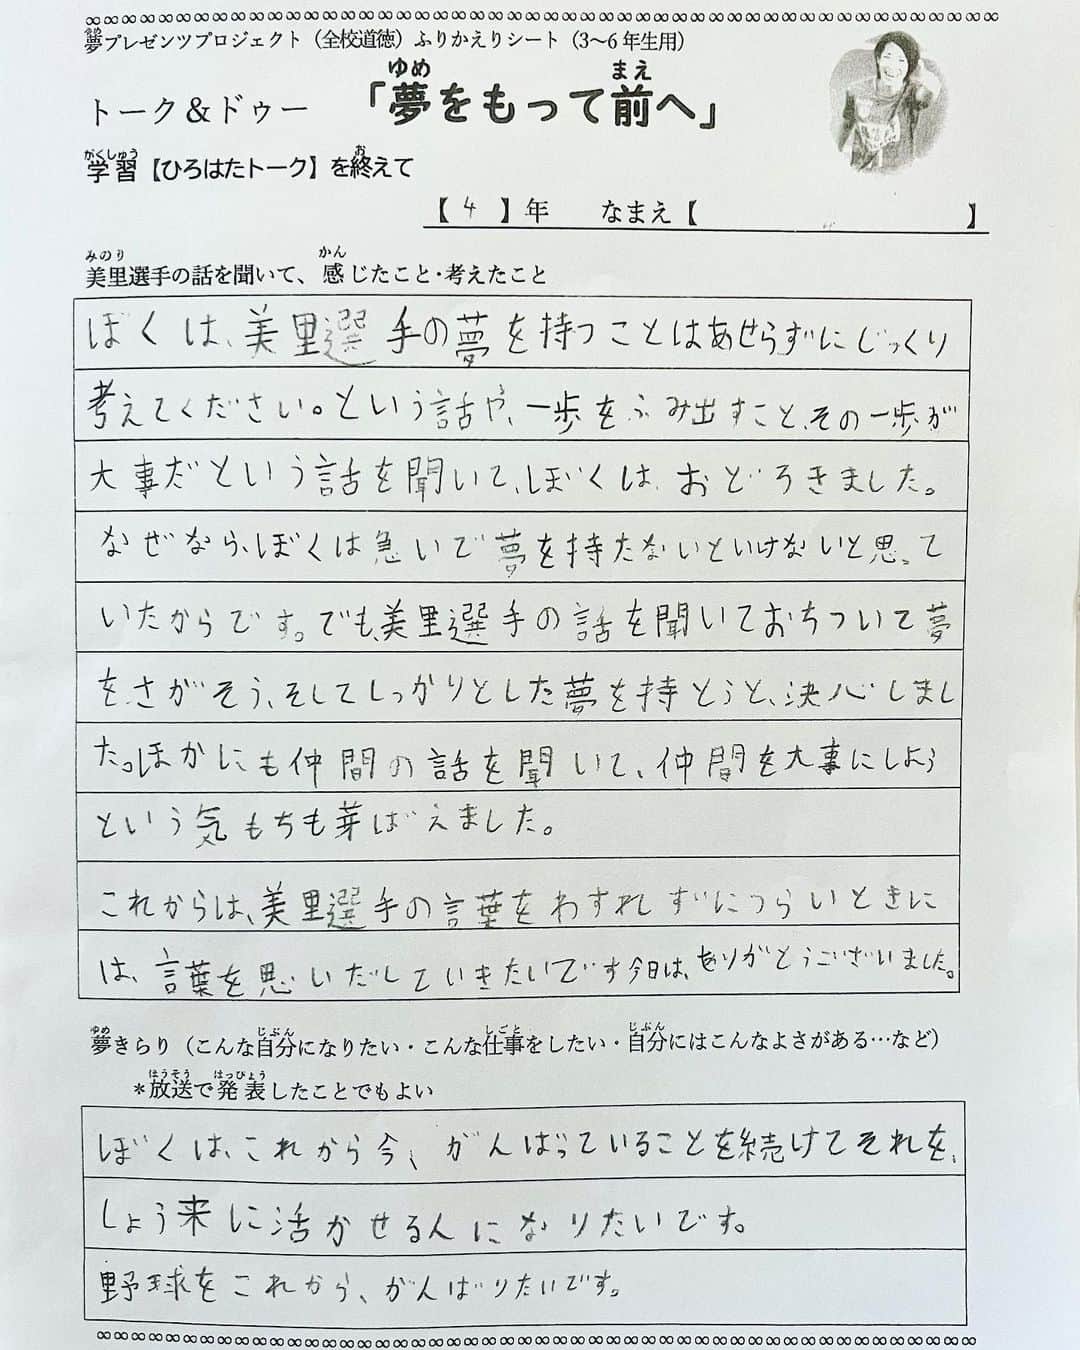 夢プレゼンツプロジェクト（全校道徳）ふりかえりシート（3～6年生用）
トーク＆ドゥー 「夢をもって前へ」
学習【ひろはたトーク】を終えて
【 4 】年 なまえ【 】
美里選手の話を聞いて、感じたこと・考えたこと
ぼくは、美里選手の夢を持つことはあせらずにじっくり
考えてください。という話や、一歩をふみ出すこと、その一歩が
大事だという話を聞いて、ぼくは、おどろきました。
なぜなら、ぼくは急いで夢を持たないといけないと思って
いたからです。でも、美里選手の話を聞いておちついて夢
をさがそう、そしてしっかりとした夢を持とうと、決心しまし
た。ほかにも仲間の話を聞いて、仲間を大事にしよう
という気もちも芽ばえました。
これからは、美里選手の言葉をわすれずにつらいときに
は、言葉を思いだしていきたいです今日は、ありがとうございました。
夢きらり（こんな自分になりたい・こんな仕事をしたい・自分にはこんなよさがある…など）
＊放送で発表したことでもよい
ぼくは、これから今、がんばっていることを続けてそれを、
しょう来に活かせる人になりたいです。
野球をこれから、がんばりたいです。